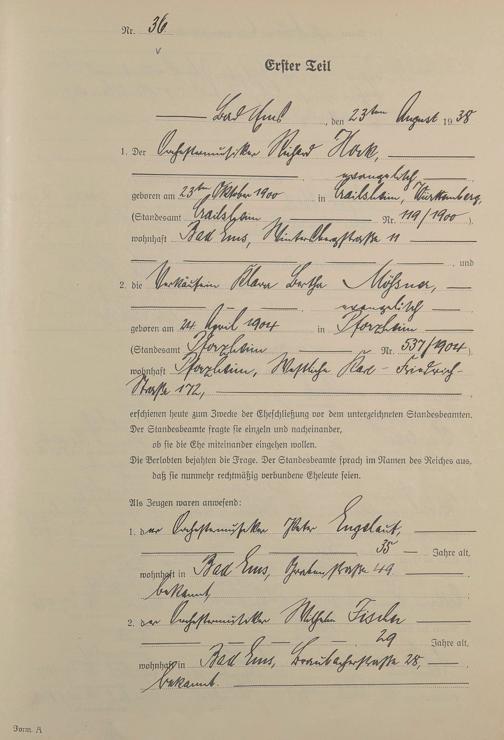 Nr. 36
Erster Teil
Bad Ems, den 23ten August 1938
1. Der Orchestermusiker Richard Hock,
evangelisch
geboren am 23ten Oktober 1900 in Crailsheim, Württemberg,
(Standesamt Crailsheim Nr. 119/1900).
wohnhaft Bad Ems, Wintersbergstraße 11
und
2. die Verkäuferin Klara Bertha Mößner,
evangelisch
geboren am 24. April 1904 in Pforzheim
(Standesamt Pforzheim Nr. 537/1904)
wohnhaft Pforzheim, Westliche Karl-Friedrich-
Straße 172,
erschienen heute zum Zwecke der Eheschließung vor dem unterzeichneten Standesbeamten.
Der Standesbeamte fragte sie einzeln und nacheinander,
ob sie die Ehe miteinander eingehen wollen.
Die Verlobten bejahten die Frage. Der Standesbeamte sprach im Namen des Reiches aus,
daß sie nunmehr rechtmäßig verbundene Eheleute seien.
Als Zeugen waren anwesend:
1. der Orchestermusiker Peter
35 Jahre alt,
wohnhaft in Bad Ems, Grabenstraße 49
bekannt,
2. der Orchestermusiker Wilhelm Fischer
29 Jahre alt,
wohnhaft in Bad Ems, Braubacherstraße 28,
bekannt.
Form. A